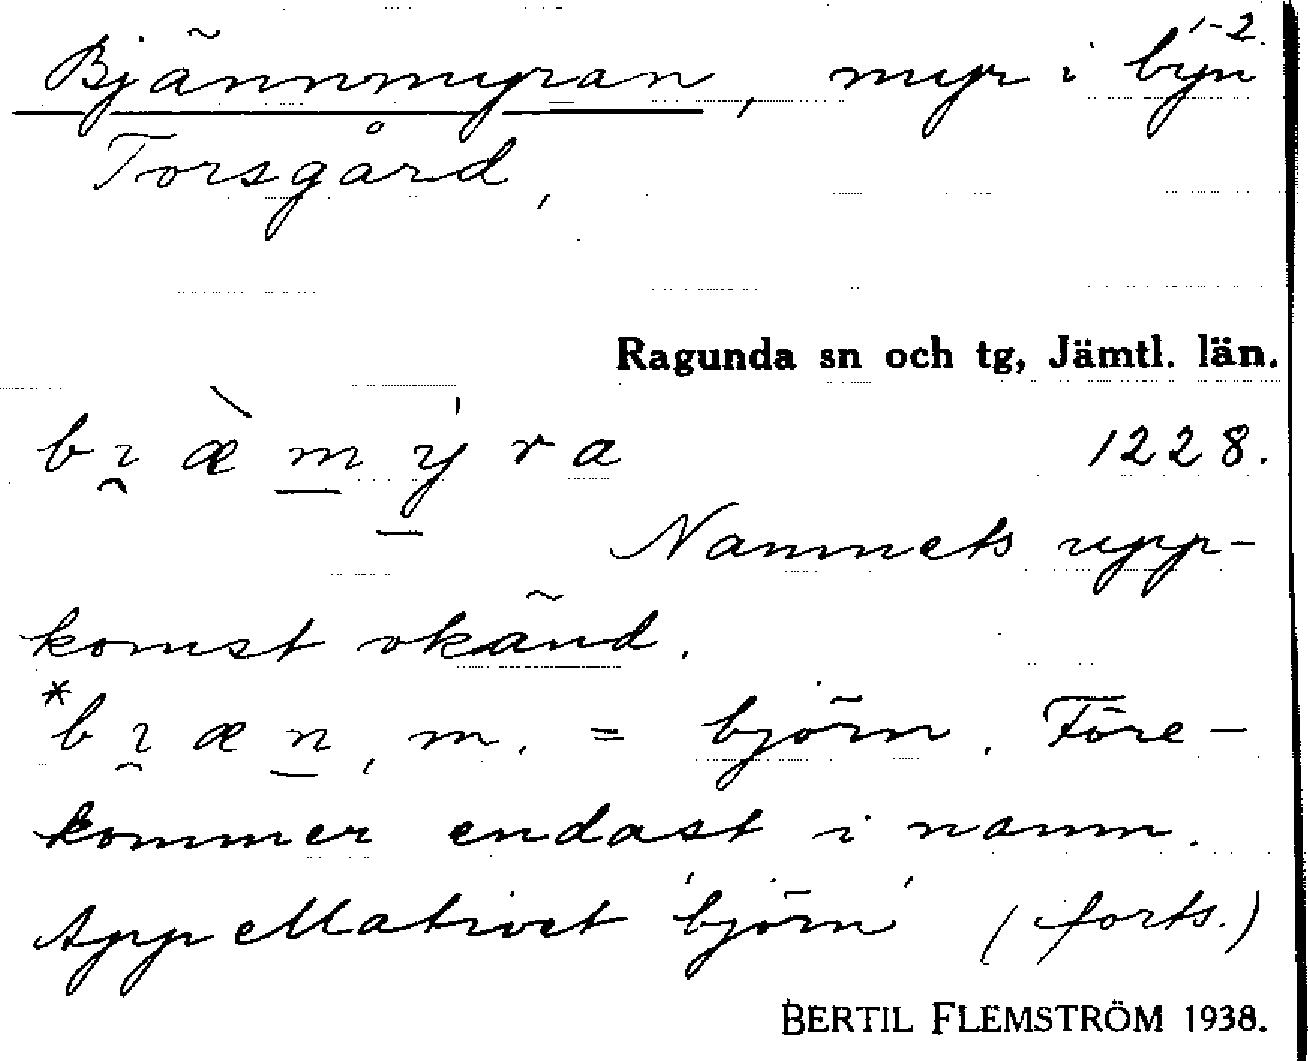 1-2.
Bjännmyran, myr i byn
Torsgård,
Ragunda sn och tg, Jämtl. län.
bı̯æ̀m̲ý̲ra 1228.
Namnets upp-
komst okänd.
*bı̯æn̲, m. = björn. Före-
kommer endast i namn.
Appellativet 'björn' (forts.)
BERTIL FLEMSTRÖM 1938.